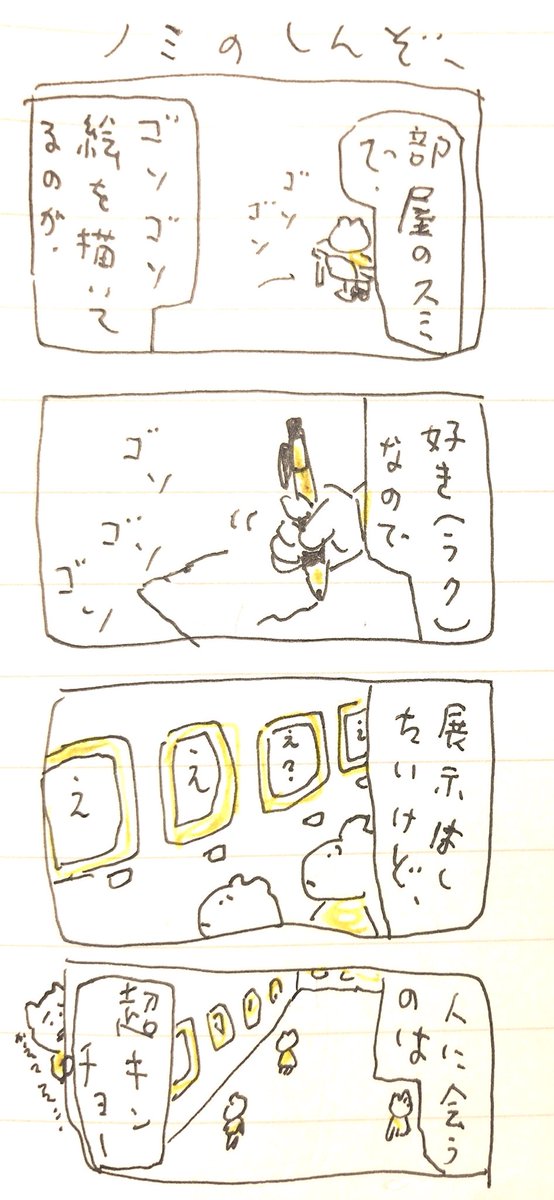 ノミのしんぞ、
部屋のスミ
で、
ゴソ
ゴソ
ゴソゴソ
絵を描いて
るのが、
好き(ラク)
なので
ゴソ
ゴソ
ゴソ
展示はし
たいけど、
え
え?
え
え
人に会う
のは
超キン
チョー